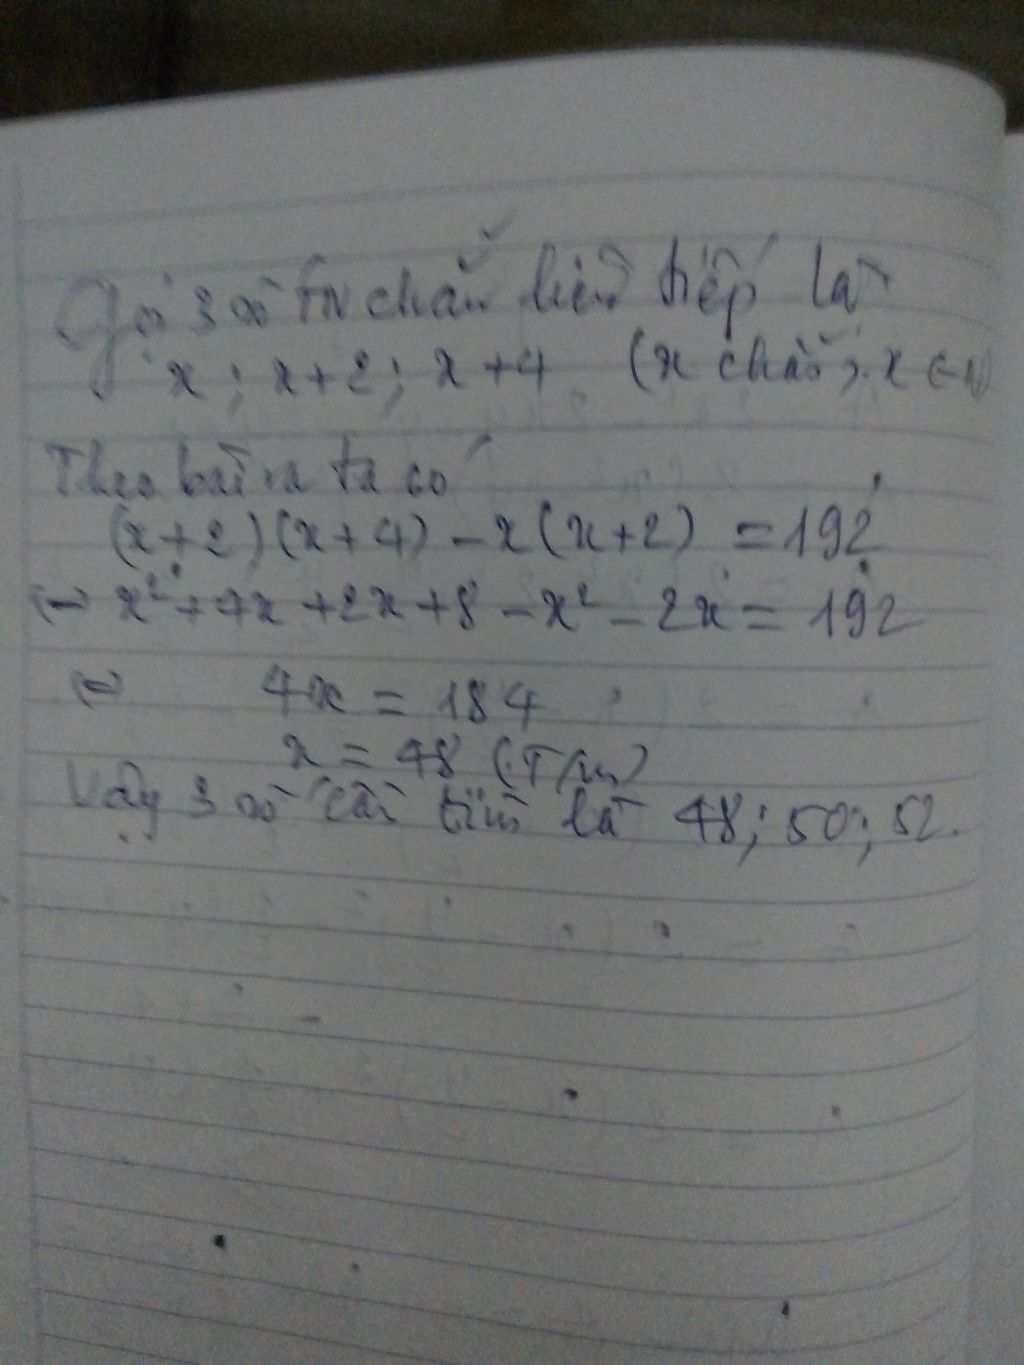 Gọi 3 số TN chẵn liên tiếp là
x ; x+2 ; x+4 (x chẵn, x ∈ N)
Theo bài ra ta có
(x+2)(x+4) - x(x+2) = 192
⇔ x² + 4x + 2x + 8 - x² - 2x = 192
⇔ 4x = 184
x = 48 (T/m)
Vậy 3 số cần tìm là 48; 50; 52.